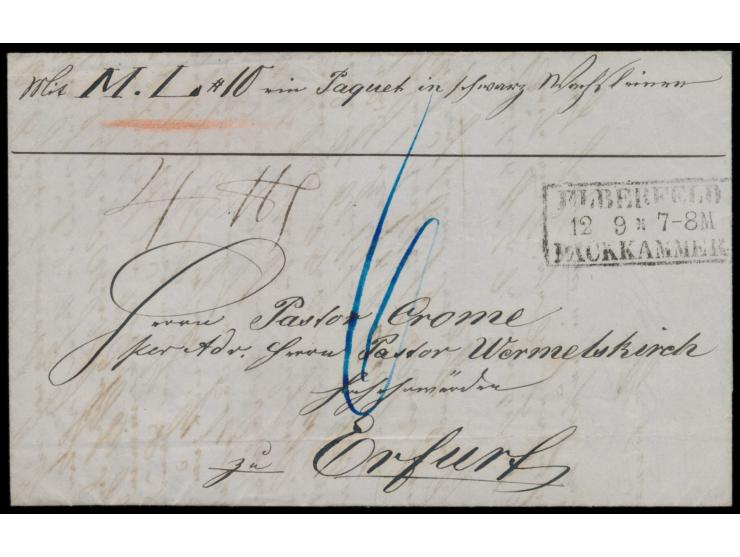 Mit M. L. # 10 ein Paquet in schwarz Wachsleinen
4 ℔
6
ELBERFELD
12 9 * 7-8M
PACKKAMMER
Herrn Pastor Crome
per Adr. Herrn Pastor Wermelskirch
Hochehrwürden
zu Erfurt